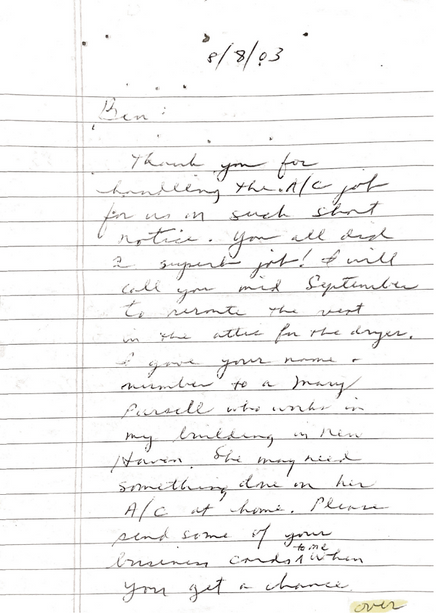 8/8/03
Ben:
Thank you for
handling the A/C job
for us on such short
notice. You all did
a superb job! I will
call you mid September
to reroute the vent
in the attic for the dryer.
I gave your name &
number to a Mary
Pursell who works in
my building in New
Haven. She may need
something done on her
A/C at home. Please
send some of your
business cards to me when
you get a chance.
over